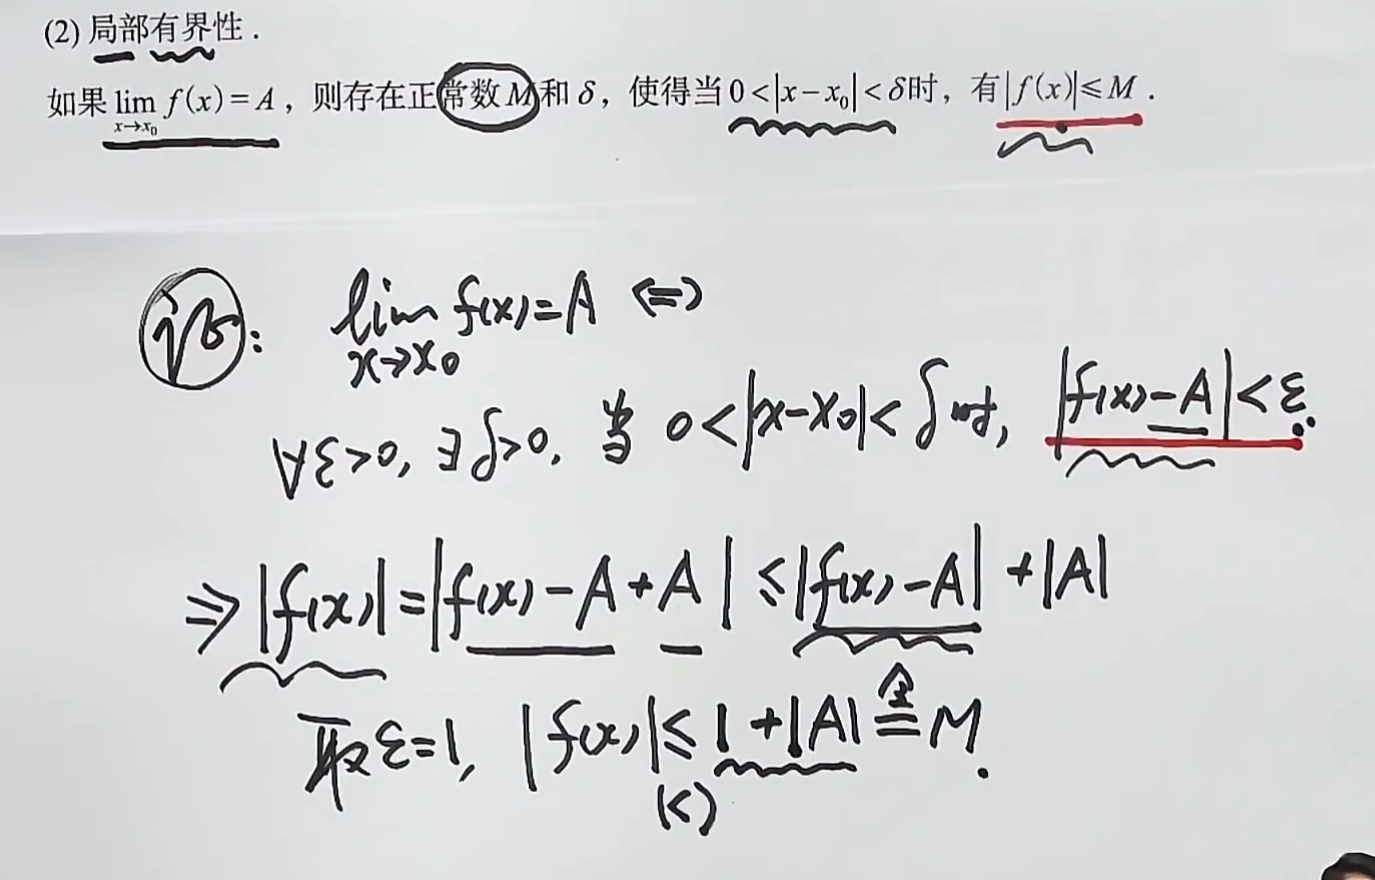 (2) 局部有界性.
如果 lim f(x)=A, 则存在正常数 M 和 δ, 使得当 0<|x-x₀|<δ 时, 有 |f(x)|⩽M.
x→x₀
证: lim f(x)=A <=>
x→x₀
∀ε>0, ∃δ>0, 当 0<|x-x₀|<δ时, |f(x)-A|<ε.
⇒|f(x)|=|f(x)-A+A|≤|f(x)-A|+|A|
取ε=1, |f(x)|≤1+|A| 令= M.
(<)